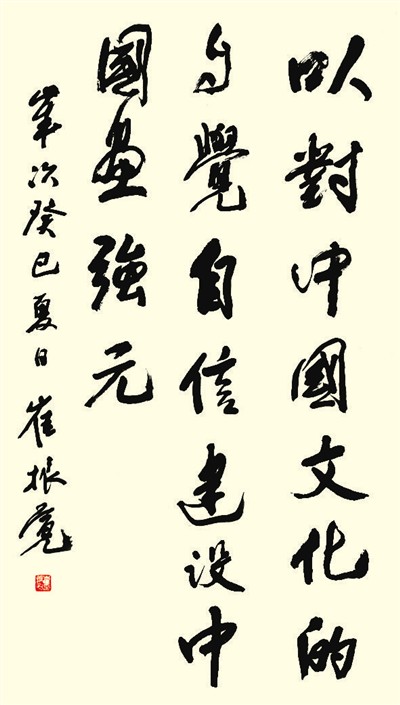 以對中國文化的
自覺自信建设中
國畫強元
歲次癸巳夏日 崔振寬